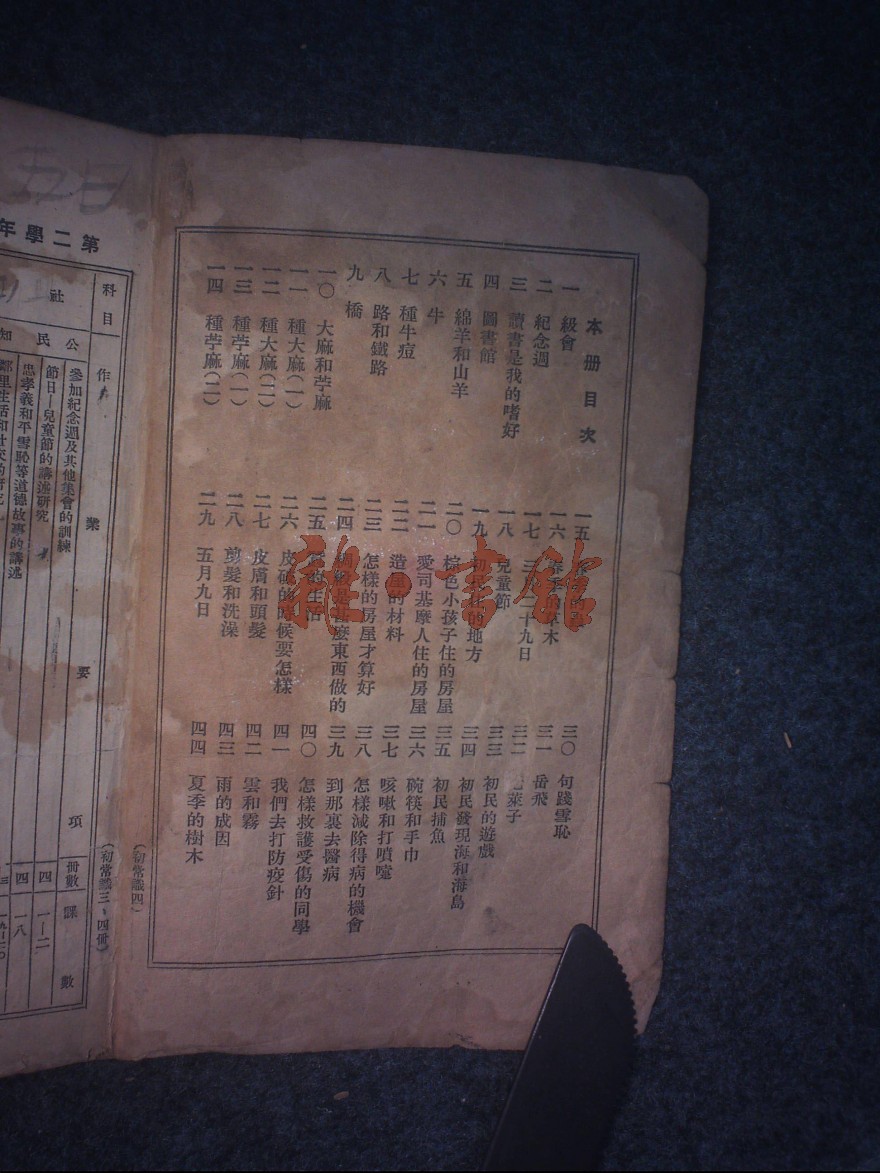 本册目次
一 級會
二 紀念週
三 讀書是我的嗜好
四 圖書館
五 綿羊和山羊
六 牛
七 種牛痘
八 路和鐵路
九 橋
一〇 大麻和苧麻
一一 種大麻(一)
一二 種大麻(二)
一三 種苧麻(一)
一四 種苧麻(二)
一五
一六 春季的草木
一七 三月二十九日
一八 兒童節
一九 初民住的地方
二〇 棕色小孩子住的房屋
二一 愛司基摩人住的房屋
二二 造屋的材料
二三 怎樣的房屋才算好
二四 甚麼東西做的
二五 生活
二六 皮破的時候要怎樣
二七 皮膚和頭髮
二八 剪髮和洗澡
二九 五月九日
三〇 句踐雪恥
三一 岳飛
三二 萊子
三三 初民的遊戲
三四 初民發現海和海島
三五 初民捕魚
三六 碗筷和手巾
三七 咳嗽和打噴嚏
三八 怎樣減除得病的機會
三九 到那裏去醫病
四〇 怎樣救護受傷的同學
四一 我們去打防疫針
四二 雲和霧
四三 雨的成因
四四 夏季的樹木
(初常識四)
雜·書館
第二學年
(初常識三、四册)
科目 作業要項 册數 課數
社
公民知
參加紀念週及其他集會的訓練 四 一—二
節日—兒童節的講述研究 四 一八
忠孝義和平雪恥等道德故事的講述